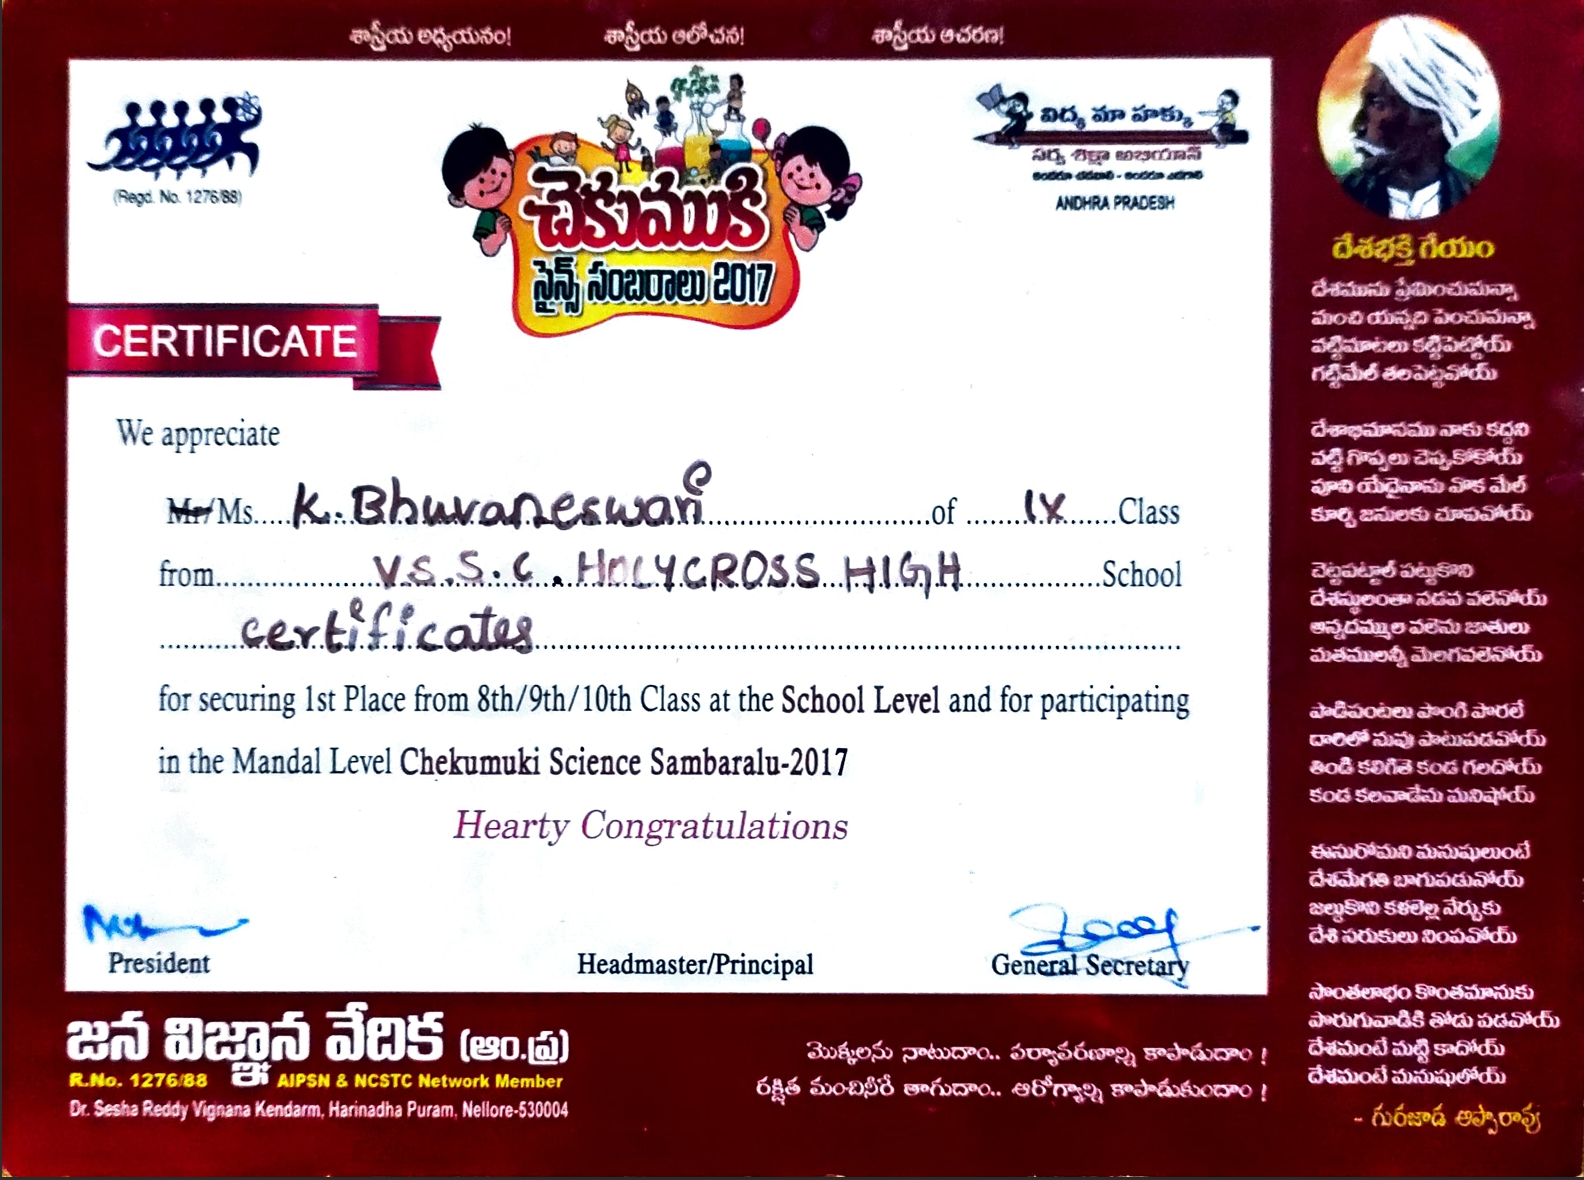 శాస్త్రీయ అధ్యయనం! శాస్త్రీయ ఆలోచన! శాస్త్రీయ ఆచరణ!
(Regd. No. 1276/88)
చెకుముకి
సైన్స్ సంబరాలు 2017
విద్య మా హక్కు
సర్వ శిక్షా అభియాన్
అందరూ చదవాలి - అందరూ ఎదగాలి
ANDHRA PRADESH
CERTIFICATE
We appreciate
Mr/Ms. K. Bhuvaneswari of IX Class
from V.S.S.C. HOLYCROSS HIGH School
certificates
for securing 1st Place from 8th/9th/10th Class at the School Level and for participating
in the Mandal Level Chekumuki Science Sambaralu-2017
Hearty Congratulations
President Headmaster/Principal General Secretary
జన విజ్ఞాన వేదిక (ఆం.ప్ర)
R.No. 1276/88 AIPSN & NCSTC Network Member
Dr. Sesha Reddy Vignana Kendarm, Harinadha Puram, Nellore-530004
మొక్కలను నాటుదాం.. పర్యావరణాన్ని కాపాడుదాం !
రక్షిత మంచినీరే తాగుదాం.. ఆరోగ్యాన్ని కాపాడుకుందాం !
దేశభక్తి గేయం
దేశమును ప్రేమించుమన్నా
మంచి యన్నది పెంచుమన్నా
వట్టిమాటలు కట్టిపెట్టోయ్
గట్టిమేల్ తలపెట్టవోయ్
దేశాభిమానము నాకు కద్దని
వట్టి గొప్పలు చెప్పకోకోయ్
పూని యేదైనాను వొక మేల్
కూర్చి జనులకు చూపవోయ్
చెట్టపట్టాల్ పట్టుకొని
దేశస్థులంతా నడవ వలెనోయ్
అన్నదమ్ముల వలెను జాతులు
మతములన్నీ మెలగవలెనోయ్
పాడిపంటలు పొంగి పొరలే
దారిలో నువు పాటుపడవోయ్
తిండి కలిగితె కండ గలదోయ్
కండ కలవాడేను మనిషోయ్
ఈసురోమని మనుషులుంటే
దేశమేగతి బాగుపడునోయ్
జల్దుకొని కళలెల్ల నేర్చుకు
దేశి సరుకులు నింపవోయ్
సొంతలాభం కొంతమానుకు
పొరుగువాడికి తోడు పడవోయ్
దేశమంటే మట్టి కాదోయ్
దేశమంటే మనుషులోయ్
- గురజాడ అప్పారావు